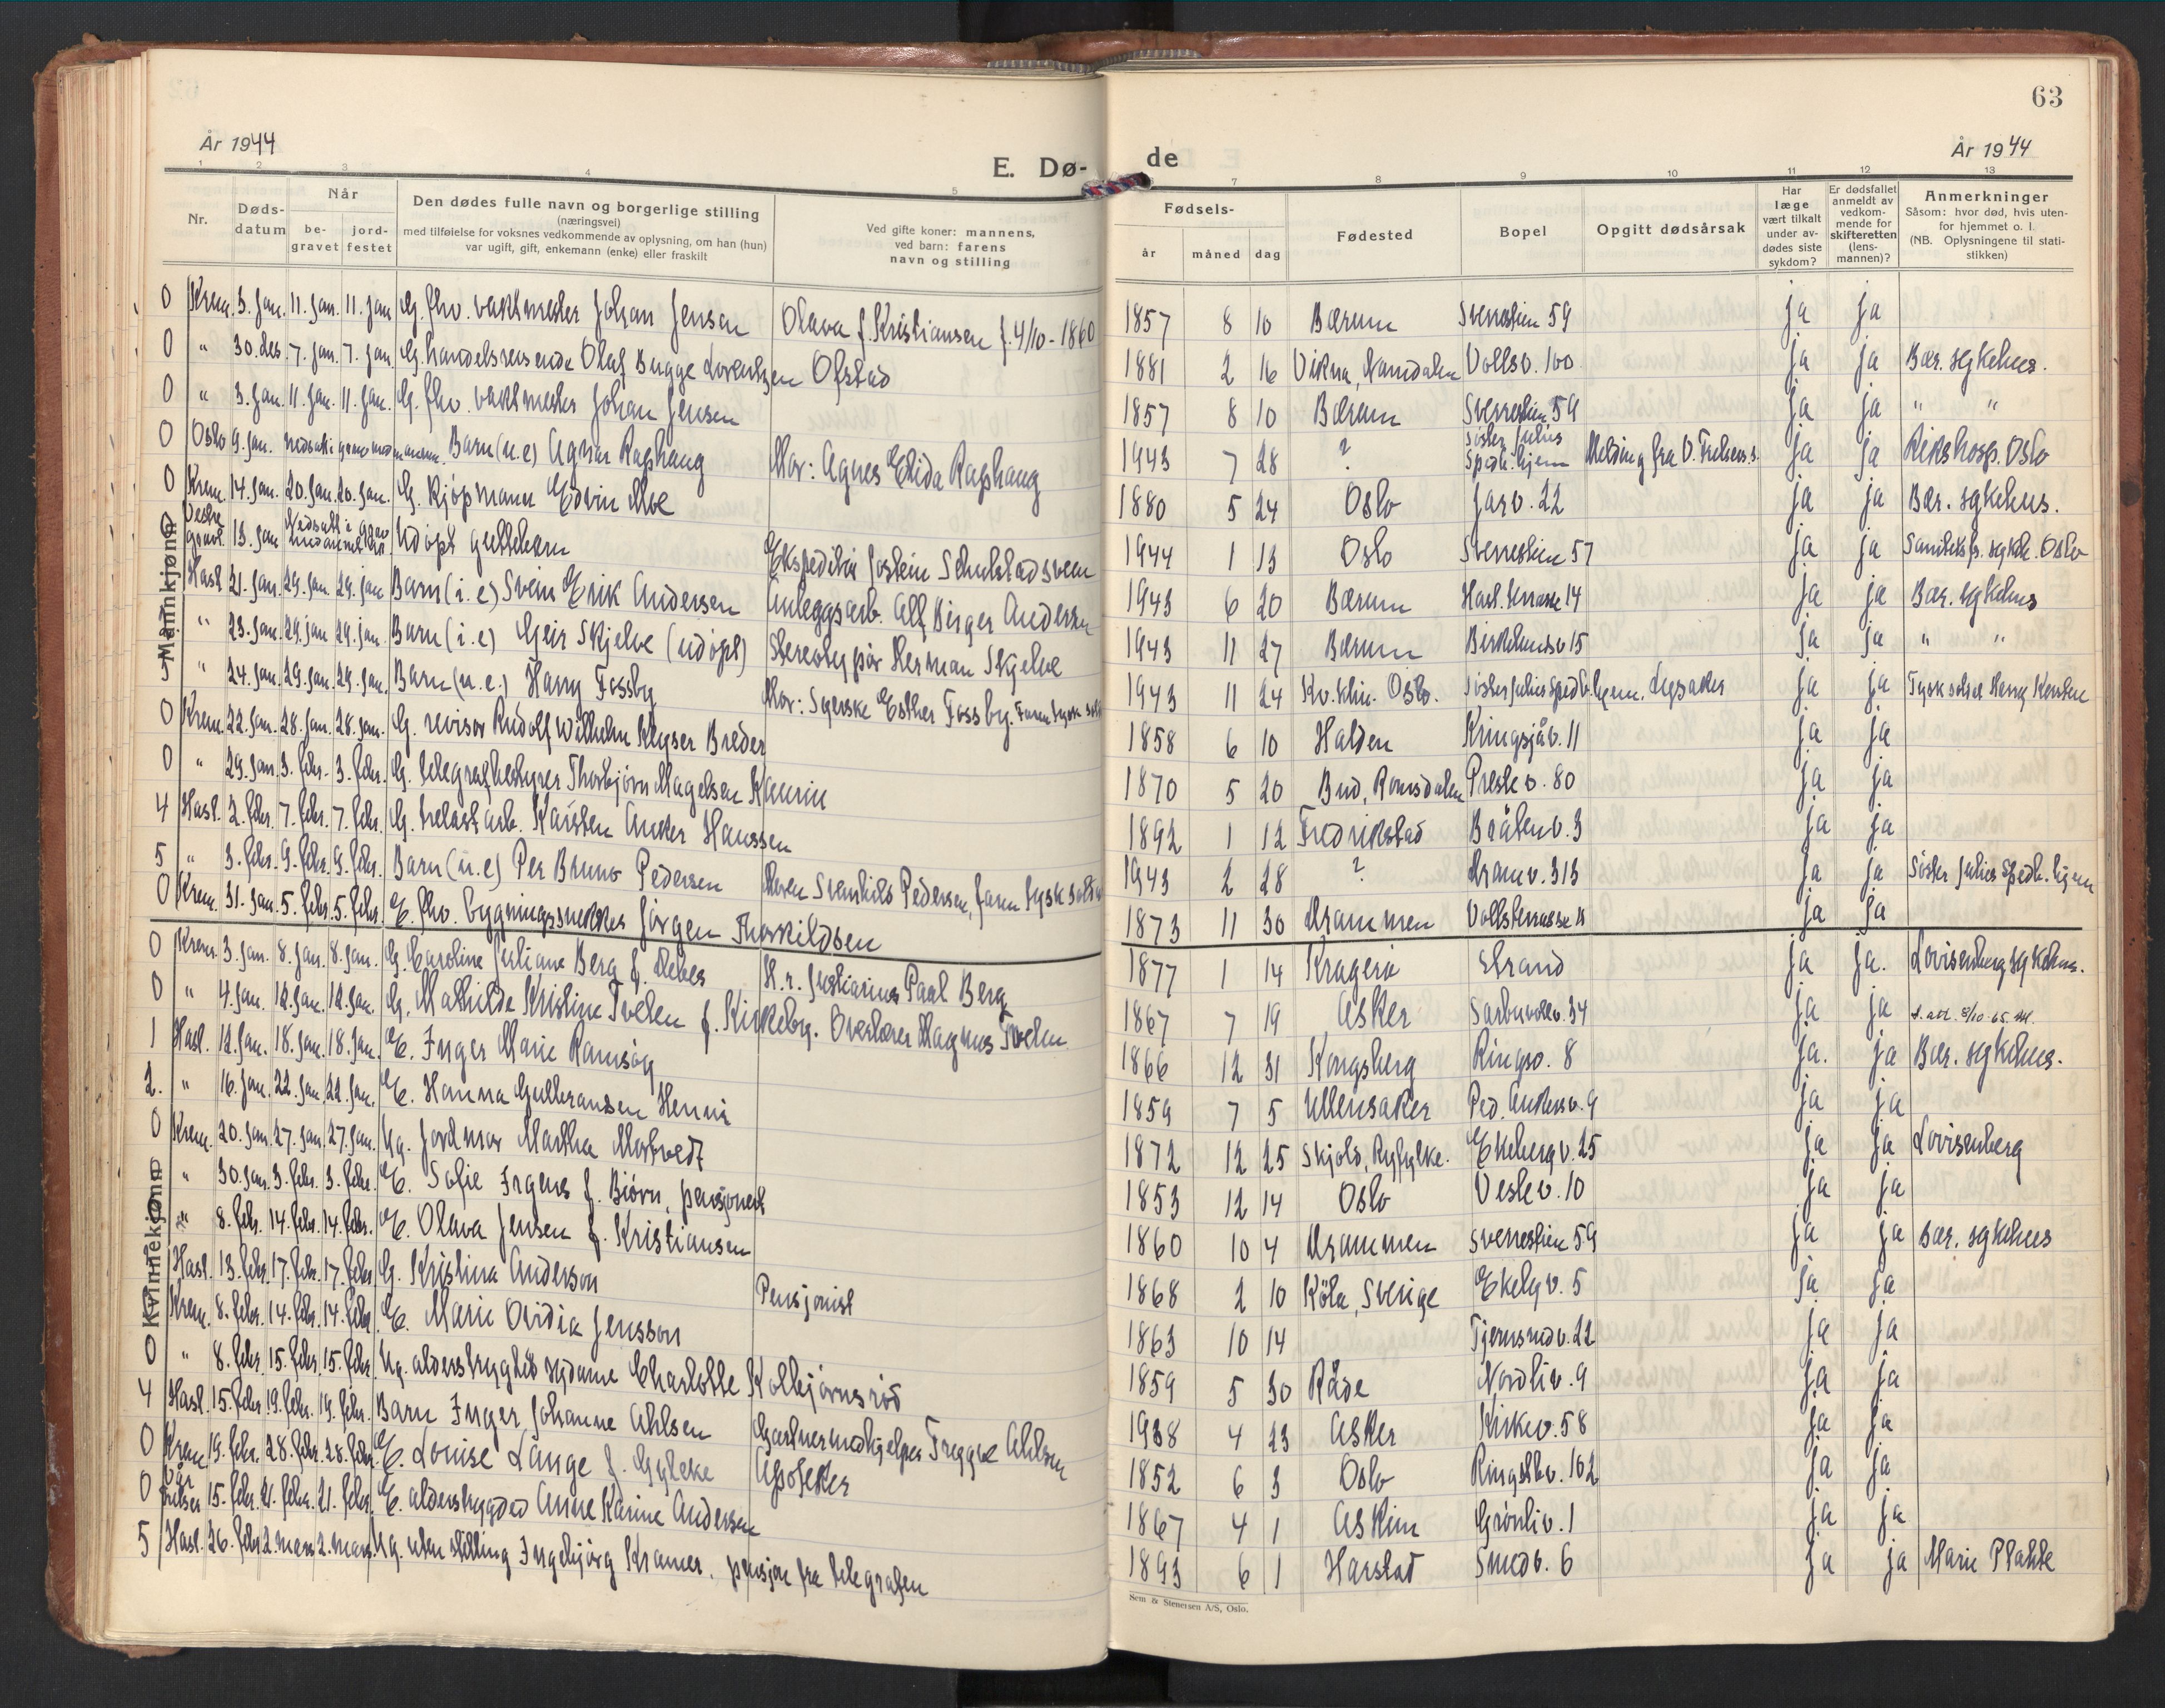 63
År 1944
E. Dø-
de
År 1944
1 2 3 4 5 7 8 9 10 11 12 13
Nr.
Døds-
datum
Når
be-
gravet
jord-
festet
Den dødes fulle navn og borgerlige stilling
(næringsvei)
med tilføielse for voksnes vedkommende av oplysning, om han (hun)
var ugift, gift, enkemann (enke) eller fraskilt
Ved gifte koner: mannens,
ved barn: farens
navn og stilling
Fødsels-
år måned dag
Fødested
Bopel
Opgitt dødsårsak
Har
læge
vært tilkalt
under av-
dødes siste
sykdom?
Er dødsfallet
anmeldt av
vedkom-
mende for
skifteretten
(lens-
mannen)?
Anmerkninger
Såsom: hvor død, hvis uten-
for hjemmet o. l.
(NB. Oplysningene til stati-
stikken)
Mannkjønn
0 Krem. 3. jan. 11. jan. 11. jan. G. fhv. vaktmester Johan Jensen Olava f. Kristiansen f. 4/10-1860 1857 8 10 Bærum Sverrestien 59 ja ja
0 " 30. des. 7. jan. 7. jan. G. handelsreisende Olaf Bugge Lorentzen Ofstad 1881 2 16 Vikna, Namdalen Vollsv. 100 ja ja Bær. sykehus.
0 " 3. jan. 11. jan. 11. jan. G. fhv. vaktmester Johan Jensen 1857 8 10 Bærum Sverrestien 59 ja ja " "
0 Oslo 9. jan. nedsatt i grav med Barn (u.e) Agnar Raphaug Mor: Agnes Elida Raphaug 1943 7 28 ? Søster Julies Spedb. hjem Melding fra V. ja ja Rikshosp. Oslo
0 Krem. 14. jan. 20. jan. 20. jan. G. Kjøpmann Edvin Moe 1880 5 24 Oslo Jarv. 22 ja ja Bær. sykehus.
0 Vestre gravl. 13. jan. Nedsatt i grav Udøpt guttebarn Ekspeditør Jostein Schulstadsveen 1944 1 13 Oslo Sverrestien 57 ja ja Sanitetsf. sykh. Oslo
Hasl. 21. jan. 29. jan. 29. jan. Barn (i.e) Svein Erik Andersen Anleggsarb. Alf Birger Andersen 1943 6 20 Bærum Hasl. terrasse 14 ja ja Bær. sykehus
" 23. jan. 29. jan. 29. jan. Barn (i.e) Geir Skjelve (udøpt) Stereotypør Herman Skjelve 1943 11 27 Bærum Birkelundsv 15 ja ja " "
3 " 24. jan. 29. jan. 29. jan. Barn (u.e.) Harry Fossby Mor: Syerske Esther Fossby. Faren tysk sold 1943 11 24 Kv. klin. Oslo. Søster Julies Spedb. hjem. Lysaker ja ja Tysk soldat Harry
0 Krem. 22. jan. 28. jan. 28. jan. G. revisor Rudolf Wilhelm Keyser Breder 1858 6 10 Halden Kringsjåv. 11 ja ja
0 " 29. jan. 3. febr. 3. febr. G. telegrafbestyrer Thorbjørn Magelsen Kaurin 1870 5 20 Bud, Romsdalen Prestev. 80 ja ja
4 Hasl. 2. febr. 7. febr. 7. febr. G. Karsten Anker Hanssen 1892 1 12 Fredrikstad Bråtenv. 3 ja ja
5 " 3. febr. 9. febr. 9. febr. Barn (u.e) Per Bruno Pedersen Moren Svenhild Pedersen, faren tysk soldat 1943 2 28 ? Dramv. 313 ja ja Søster Julies Spedb. hjem
0 Krem. 31. jan. 5. febr. 5. febr. E. fhv. bygningssnekker Jørgen Thorkildsen 1873 11 30 Drammen Vollsterrasse ja ja
Kvinnekjønn
0 Krem. 3. jan. 8. jan. 8. jan. G. Caroline Juliane Berg f. Debes H.r. Justiarius Paal Berg 1877 1 14 Kragerø Strand ja ja. Lovisenberg sykehus.
0 " 4. jan. 12. jan. 12. jan. G. Mathilde Kristine Tveten f. Kirkeby. Overlærer Magnus Tveten 1867 7 19 Asker Sarbuvollv. 34 ja ja
1 Hasl. 12. jan. 18. jan. 18. jan. E. Inger Marie Ramsøy 1866 12 31 Kongsberg Ringv. 8 ja. ja Bær. sykehus.
2. " 16. jan. 22. jan. 22. jan. E. Hanna Gulbransen Hennie 1859 7 5 Ullensaker Ped. Ankersv. 9 ja ja
0 Krem. 20. jan. 27. jan. 27. jan. Ug. Jordmor Martha Mortvedt 1872 12 25 Skjold, Ryfylke. Ekebergv. 25 ja ja Lovisenberg
" 30. jan. 3. febr. 3. febr. E. Sofie Irgens f. Biørn, pensjonert 1853 12 14 Oslo Vestev. 10 ja ja
" 8. febr. 14. febr. 14. febr. E. Olava Jensen f. Kristiansen 1860 10 4 Drammen Sverrestien 59 ja ja Bær. sykehus
Hasl. 13. febr. 17. febr. 17. febr. G. Kristina Anderson 1868 2 10 Köla, Sverige Ekelyv. 5 ja ja
Krem. 8. febr. 14. febr. 14. febr. E. Marie Ovidia Jensson Pensjonist 1863 10 14 Tjernsrudv. 22 ja ja
0 " 8. febr. 15. febr. 15. febr. Ug. alderstrygded sydame Charlotte Kolbjørnsrød 1859 5 30 Råde Nordliv. 9 ja ja
4 Hasl. 15. febr. 19. febr. 19. febr. Barn Inger Johanne Ahlsen Gartnermedhjelper Tryggve Ahlsen 1938 4 23 Asker Kirkev. 58 ja ja
0 Krem 19. febr. 28. febr. 28. febr. E. Louise Lange f. Apoteker 1852 6 3 Oslo Ringstbv. 102 ja ja
0 Vår frelser 15. febr. 21. febr. 21. febr. E. alderstrygded Anne Karine Andersen 1867 4 1 Askim Grønliv. 1 ja ja
5 Hasl. 26. febr. 2. mars 2. mars. Ug. uten stilling Ingebjørg Kramer. pensjon fra telegrafen 1893 6 1 Harstad Smedv. 6 ja ja Marie Plahte
Sem & Stenersen A/S, Oslo.